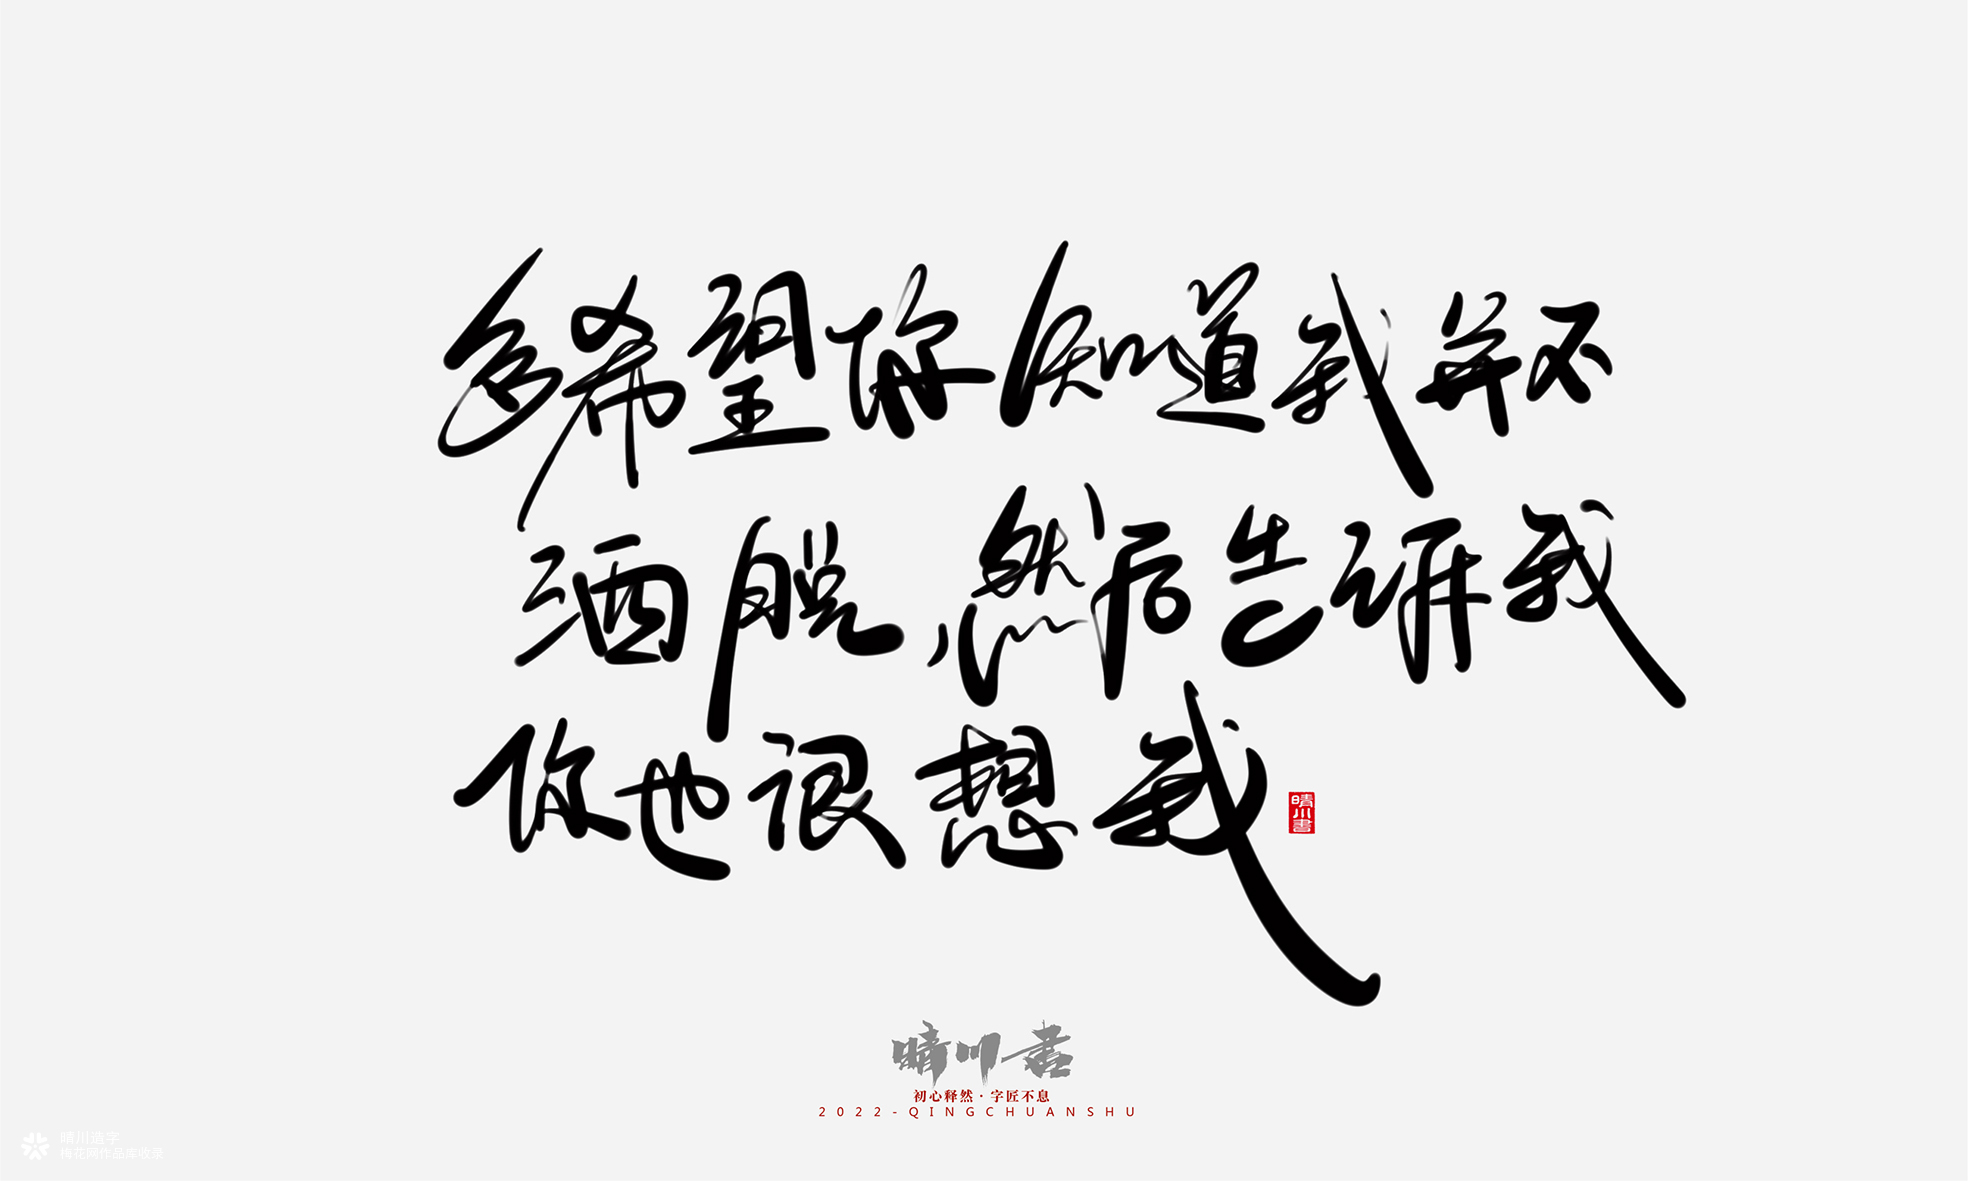 多希望你知道我并不
洒脱,然后告诉我
你也很想我
晴川书
晴川书
初心释然·字匠不息
2022-QINGCHUANSHU
晴川造字
梅花网作品库收录